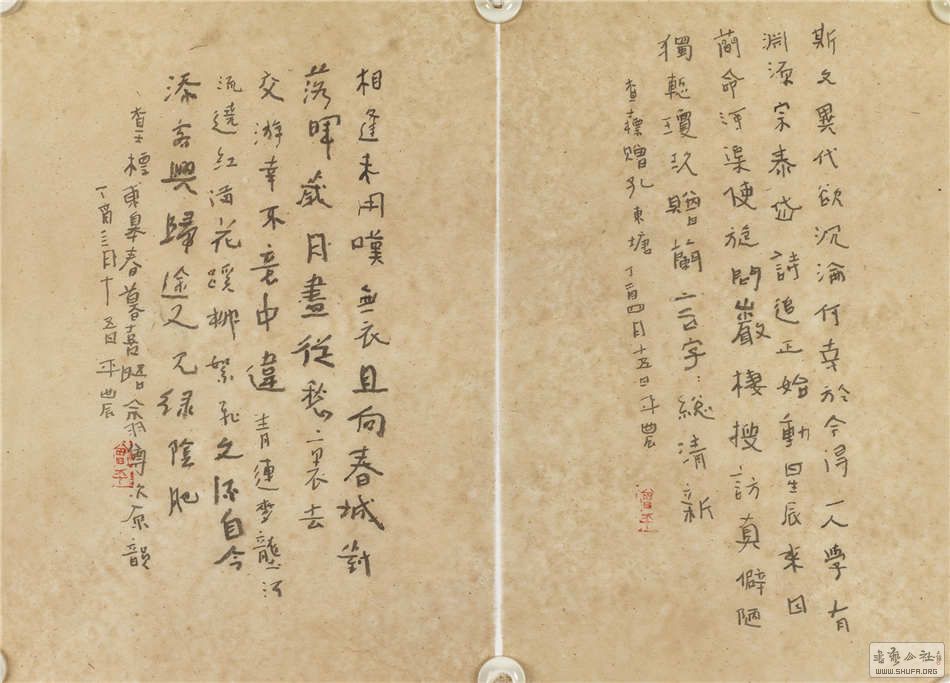 斯文異代欲沉淪何幸於今得一人學有
淵源宗泰岱詩追正始動星辰來因
蕳命河渠使旋問巖棲搜訪真僻陋
獨慙瓊玖贈蘭言字:總清新
查士標贈孔東塘 丁酉四月十五日 平農
相逢未用嘆無衣且向春城對
落暉歲月盡從愁裏去
交游幸不意中違 青蓮夢 河
流遶紅滿花蹊柳絮 文酒自今
添客興歸途又見綠陰肥
查士標東皋春暮喜晤 次原韻
丁酉三月十五日 平農
書藝公社
WWW.SHUFA.ORG